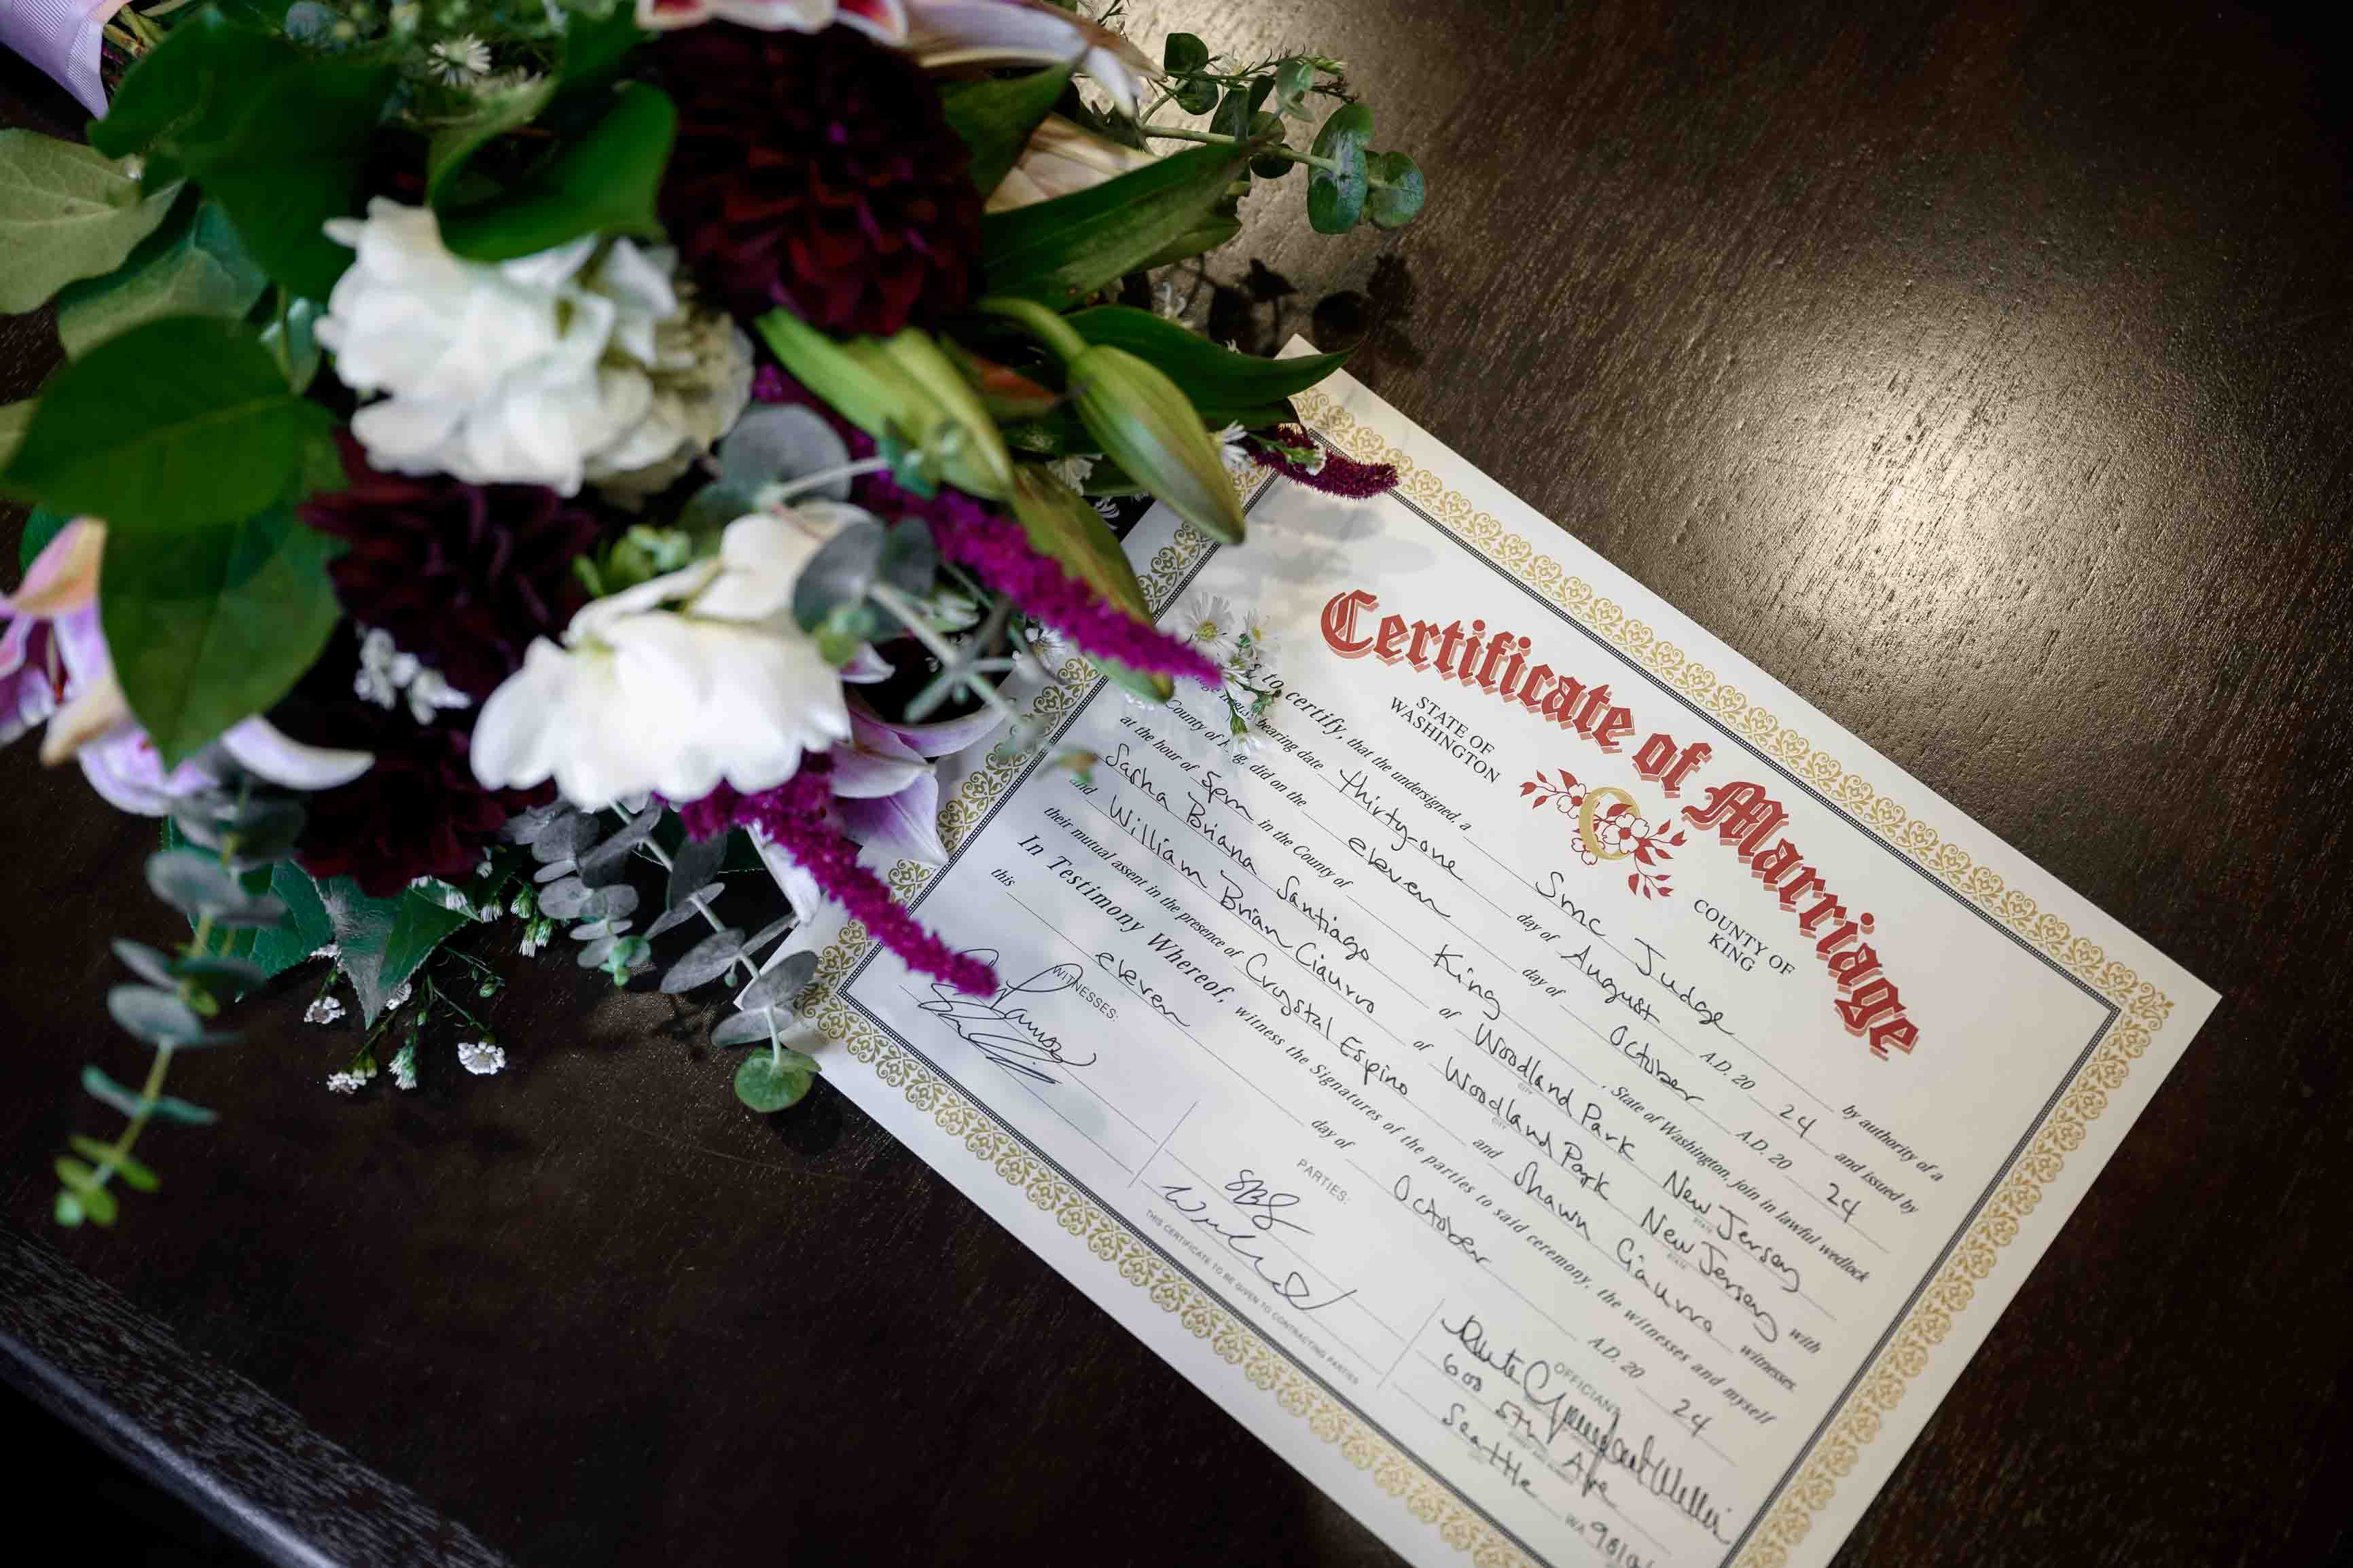 Certificate of Marriage
STATE OF
WASHINGTON
COUNTY OF
KING
to certify, that the undersigned, a Smc Judge by authority of a
bearing date thirty-one day of August A.D. 20 24 and issued by
County of King, did on the eleven day of October A.D. 20 24
at the hour of 5pm in the County of King, State of Washington, join in lawful wedlock
Sasha Briana Santiago of Woodland Park New Jersey
CITY STATE
and William Brian Ciaurro of Woodland Park New Jersey with
CITY STATE
their mutual assent in the presence of Crystal Espino and Shawn Ciaurro witnesses.
In Testimony Whereof, witness the Signatures of the parties to said ceremony, the witnesses and myself
this eleven day of October A.D. 20 24
WITNESSES:
PARTIES:
OFFICIANT
SBS
600 5th Ave
Seattle WA
THIS CERTIFICATE TO BE GIVEN TO CONTRACTING PARTIES